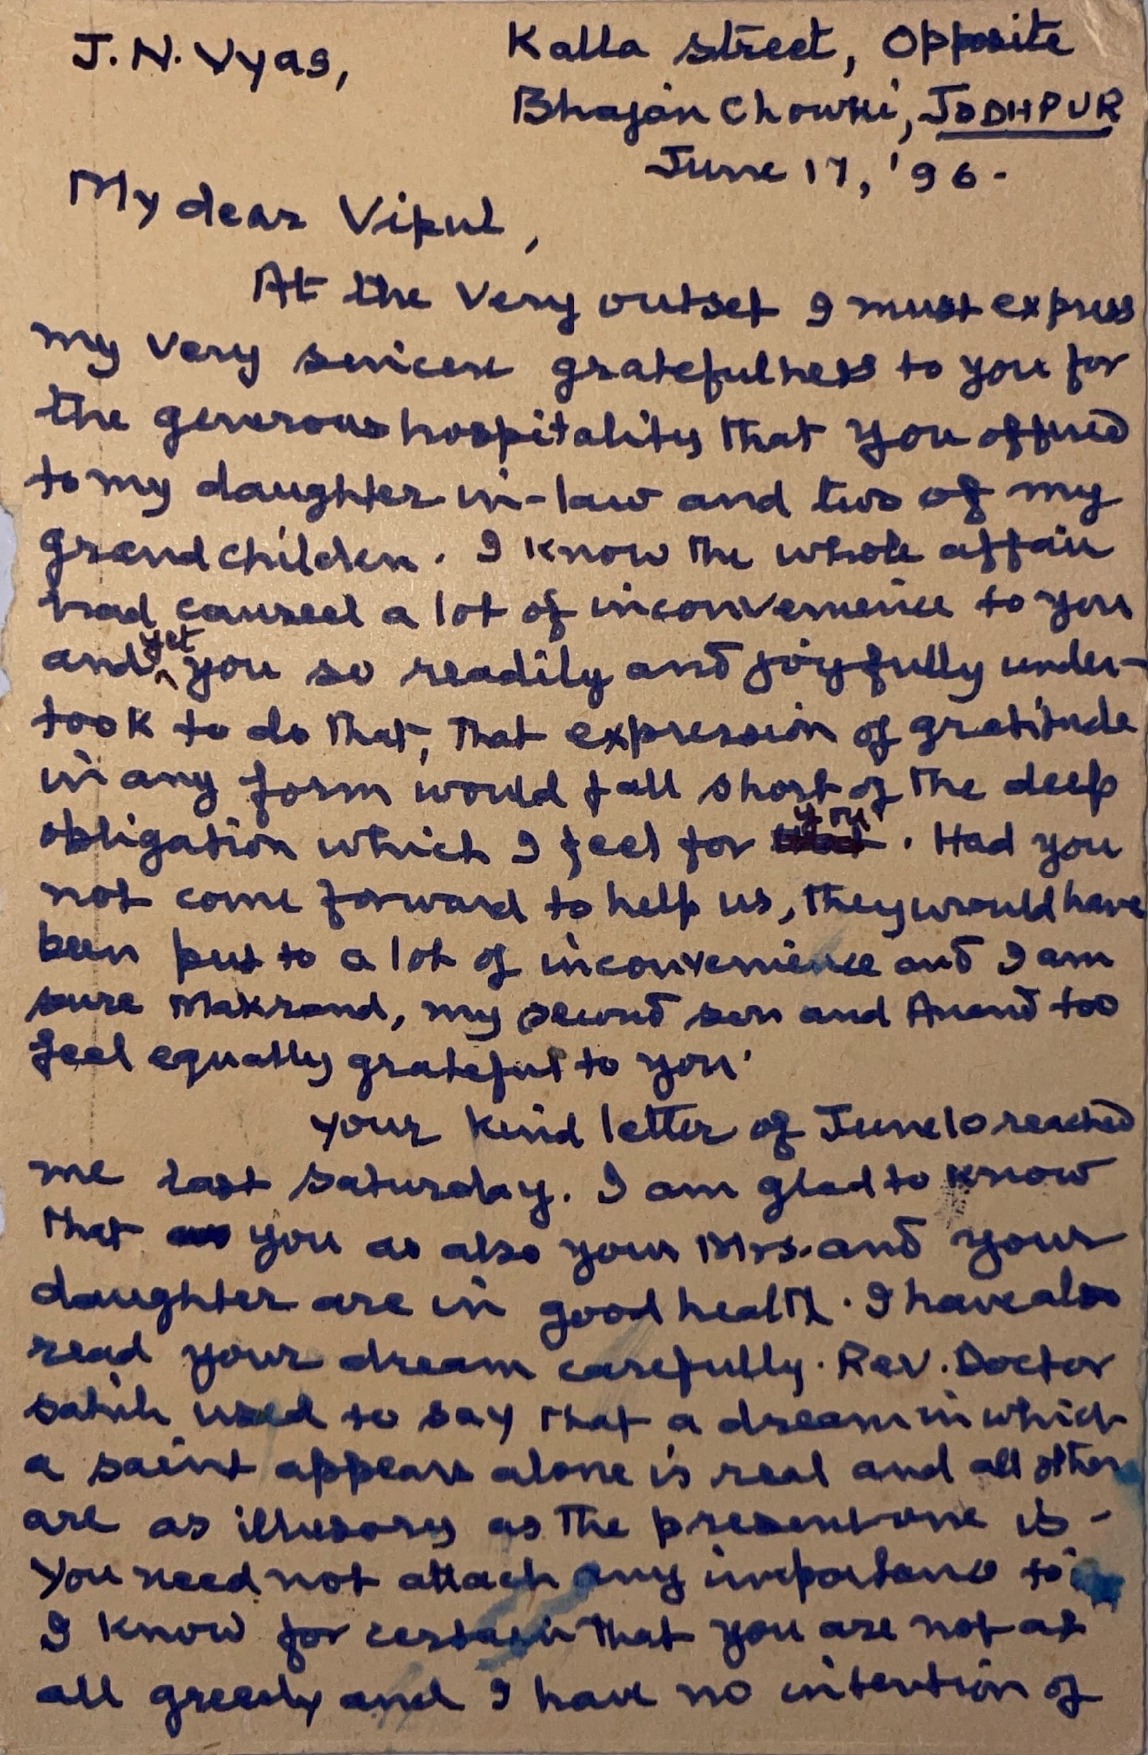 J. N. Vyas,
Kalla Street, Opposite
Bhajan Chowki, JODHPUR
June 17, '96.
My dear Vipul,
At the very outset I must express
my very sincere gratefulness to you for
the generous hospitality that you offered
to my daughter-in-law and two of my
grandchildren. I know the whole affair
had caused a lot of inconvenience to you
and yet you so readily and joyfully under-
took to do that, that expression of gratitude
in any form would fall short of the deep
obligation which I feel for you. Had you
not come forward to help us, they would have
been put to a lot of inconvenience and I am
sure Makrand, my second son and Anand too
feel equally grateful to you.
Your kind letter of June 10 reached
me last Saturday. I am glad to know
that you as also your Mrs. and your
daughter are in good health. I have also
read your dream carefully. Rev. Doctor
Sahib used to say that a dream in which
a saint appears alone is real and all others
are as illusory as the present one is.
You need not attach any importance to
I know for certain that you are not at
all greedy and I have no intention of